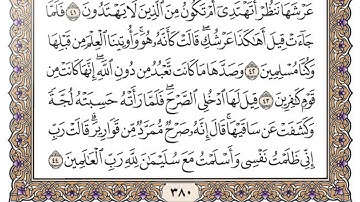 عَرْشَهَا نَنظُرْ أَتَهْتَدِىٓ أَمْ تَكُونُ مِنَ ٱلَّذِينَ لَا يَهْتَدُونَ ٤١ فَلَمَّا
جَآءَتْ قِيلَ أَهَٰكَذَا عَرْشُكِ قَالَتْ كَأَنَّهُۥ هُوَ وَأُوتِينَا ٱلْعِلْمَ مِن قَبْلِهَا
وَكُنَّا مُسْلِمِينَ ٤٢ وَصَدَّهَا مَا كَانَت تَّعْبُدُ مِن دُونِ ٱللَّهِ إِنَّهَا كَانَتْ مِن
قَوْمٍ كَٰفِرِينَ ٤٣ قِيلَ لَهَا ٱدْخُلِى ٱلصَّرْحَ فَلَمَّا رَأَتْهُ حَسِبَتْهُ لُجَّةً
وَكَشَفَتْ عَن سَاقَيْهَا قَالَ إِنَّهُۥ صَرْحٌ مُّمَرَّدٌ مِّن قَوَارِيرَ قَالَتْ رَبِّ
إِنِّى ظَلَمْتُ نَفْسِى وَأَسْلَمْتُ مَعَ سُلَيْمَٰنَ لِلَّهِ رَبِّ ٱلْعَٰلَمِينَ ٤٤
٣٨٠